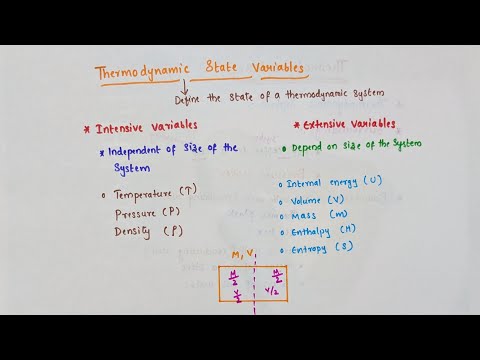 Thermodynamic State Variables
Define the state of a thermodynamic system
* Intensive Variables
* Independent of size of the system
Temperature (T)
Pressure (P)
Density (ρ)
* Extensive Variables
Depend on size of the system
Internal energy (U)
Volume (V)
Mass (m)
Enthalpy (H)
Entropy (S)
M, V
M/2 M/2
V/2 V/2